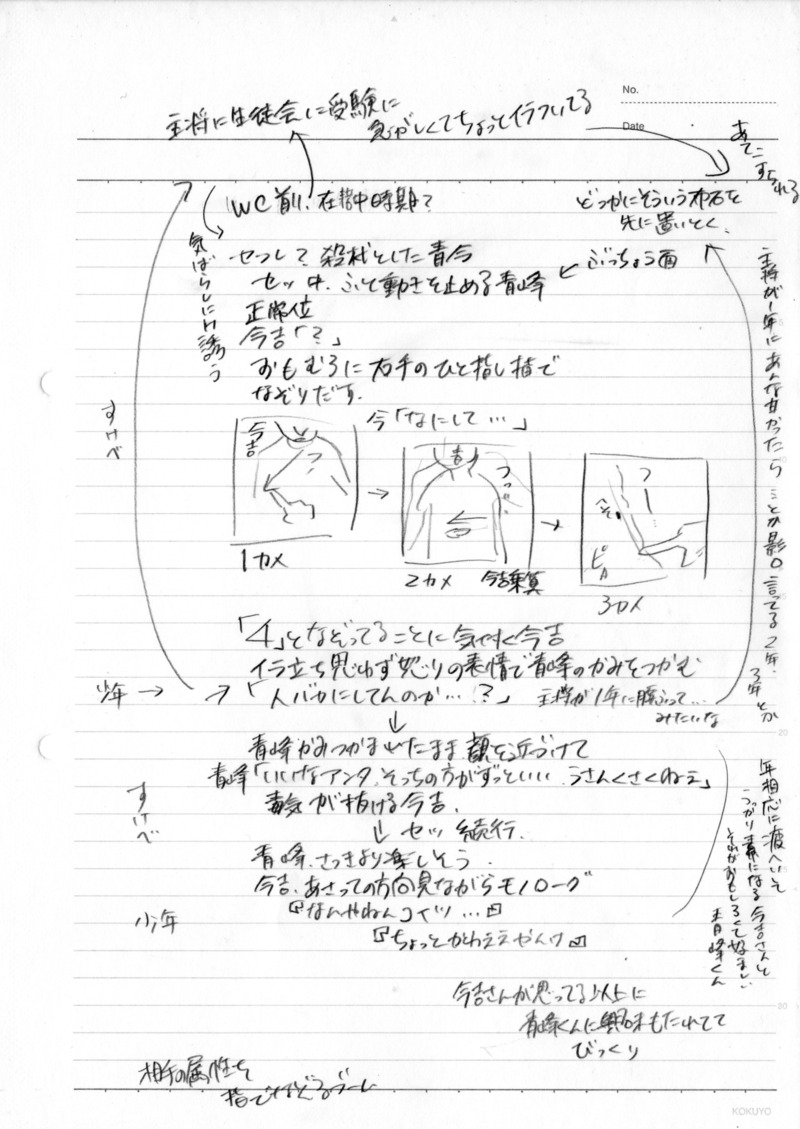 No.
Date
主将に生徒会に受験に
気ぜわしくてちょっとイラついてる
あてこすられる
WC前、在学中時期?
どっかにそういう布石を
先に置いとく。
気ばらしにH誘う
セフレ?殺伐とした青今
ぶっちょう面
セッ中、ふと動きを止める青峰
正常位
今吉「?」
おもむろに右手のひと指し指で
なぞりだす。
すけべ
今「なにして…」
今吉
つ
1カメ
つつ…
2カメ
今吉
つ
へそ
ピ
3カメ
「4」となぞってることに気付く今吉
イラ立ち思わず怒りの表情で青峰のかみをつかむ
少年→
「人バカにしてんのか…!?」
主将が1年に
みたいな
主将が1年にあんな甘かったら とか影口言ってる2年、3年とか
青峰かみつかまれたまま顔を近づけて
青峰「いいけなアンタ、そっちの方がずっといい、うさんくさくねェ」
毒気が抜ける今吉。
すけべ
セッ 続行。
青峰、さっきより楽しそう。
今吉、あさっての方向見ながらモノローグ
『なんやねんコイツ…』
少年
『ちょっとかわええやんけ』
年相応に疲へいして
うっかり素になる今吉さんと
それがおもしろくて好ましい
青峰くん
今吉さんが思ってる以上に
青峰くんに興味もたれてて
びっくり
相手の属性を
指でなぞるプレー
KOKUYO